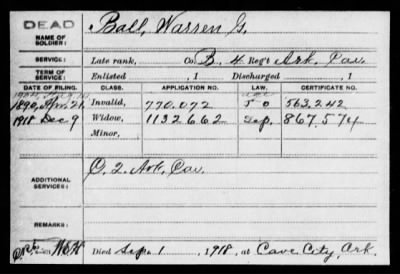 DEAD
NAME OF SOLDIER: Ball, Warren G.
SERVICE: Late rank, Co. B, 4 Reg't Ark. Cav.
TERM OF SERVICE: Enlisted , 1 Discharged , 1
DATE OF FILING. CLASS. APPLICATION NO. LAW. CERTIFICATE NO.
1890, Apr. 21. Invalid, 770.072 J O 563.242
1918 Dec 9 Widow, 1132662 Sep. 867.574
Minor,
ADDITIONAL SERVICES: C. 2. Ark. Cav.
REMARKS:
Died Sep. 1 , 1918, at Cave City, Ark.